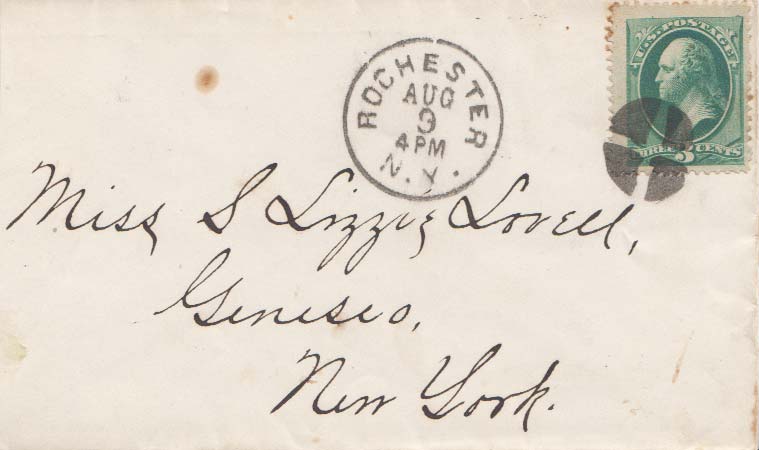 U.S. POSTAGE
THREE 3 CENTS
ROCHESTER
AUG
9
4 PM
N.Y.
Miss S Lizzie Lovell,
Geneseo,
New York.